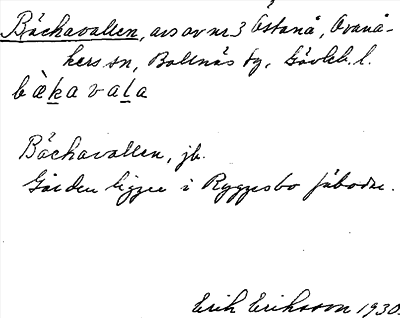 Bäckavallen, avs av nr 3 Östanå, Ovanå-
kers sn, Bollnäs tg, Gävleb. l.
bὲkavala
Bäckavallen, jb.
Gården ligger i Ryggesbo fäbodar.
Erik Eriksson 1930.